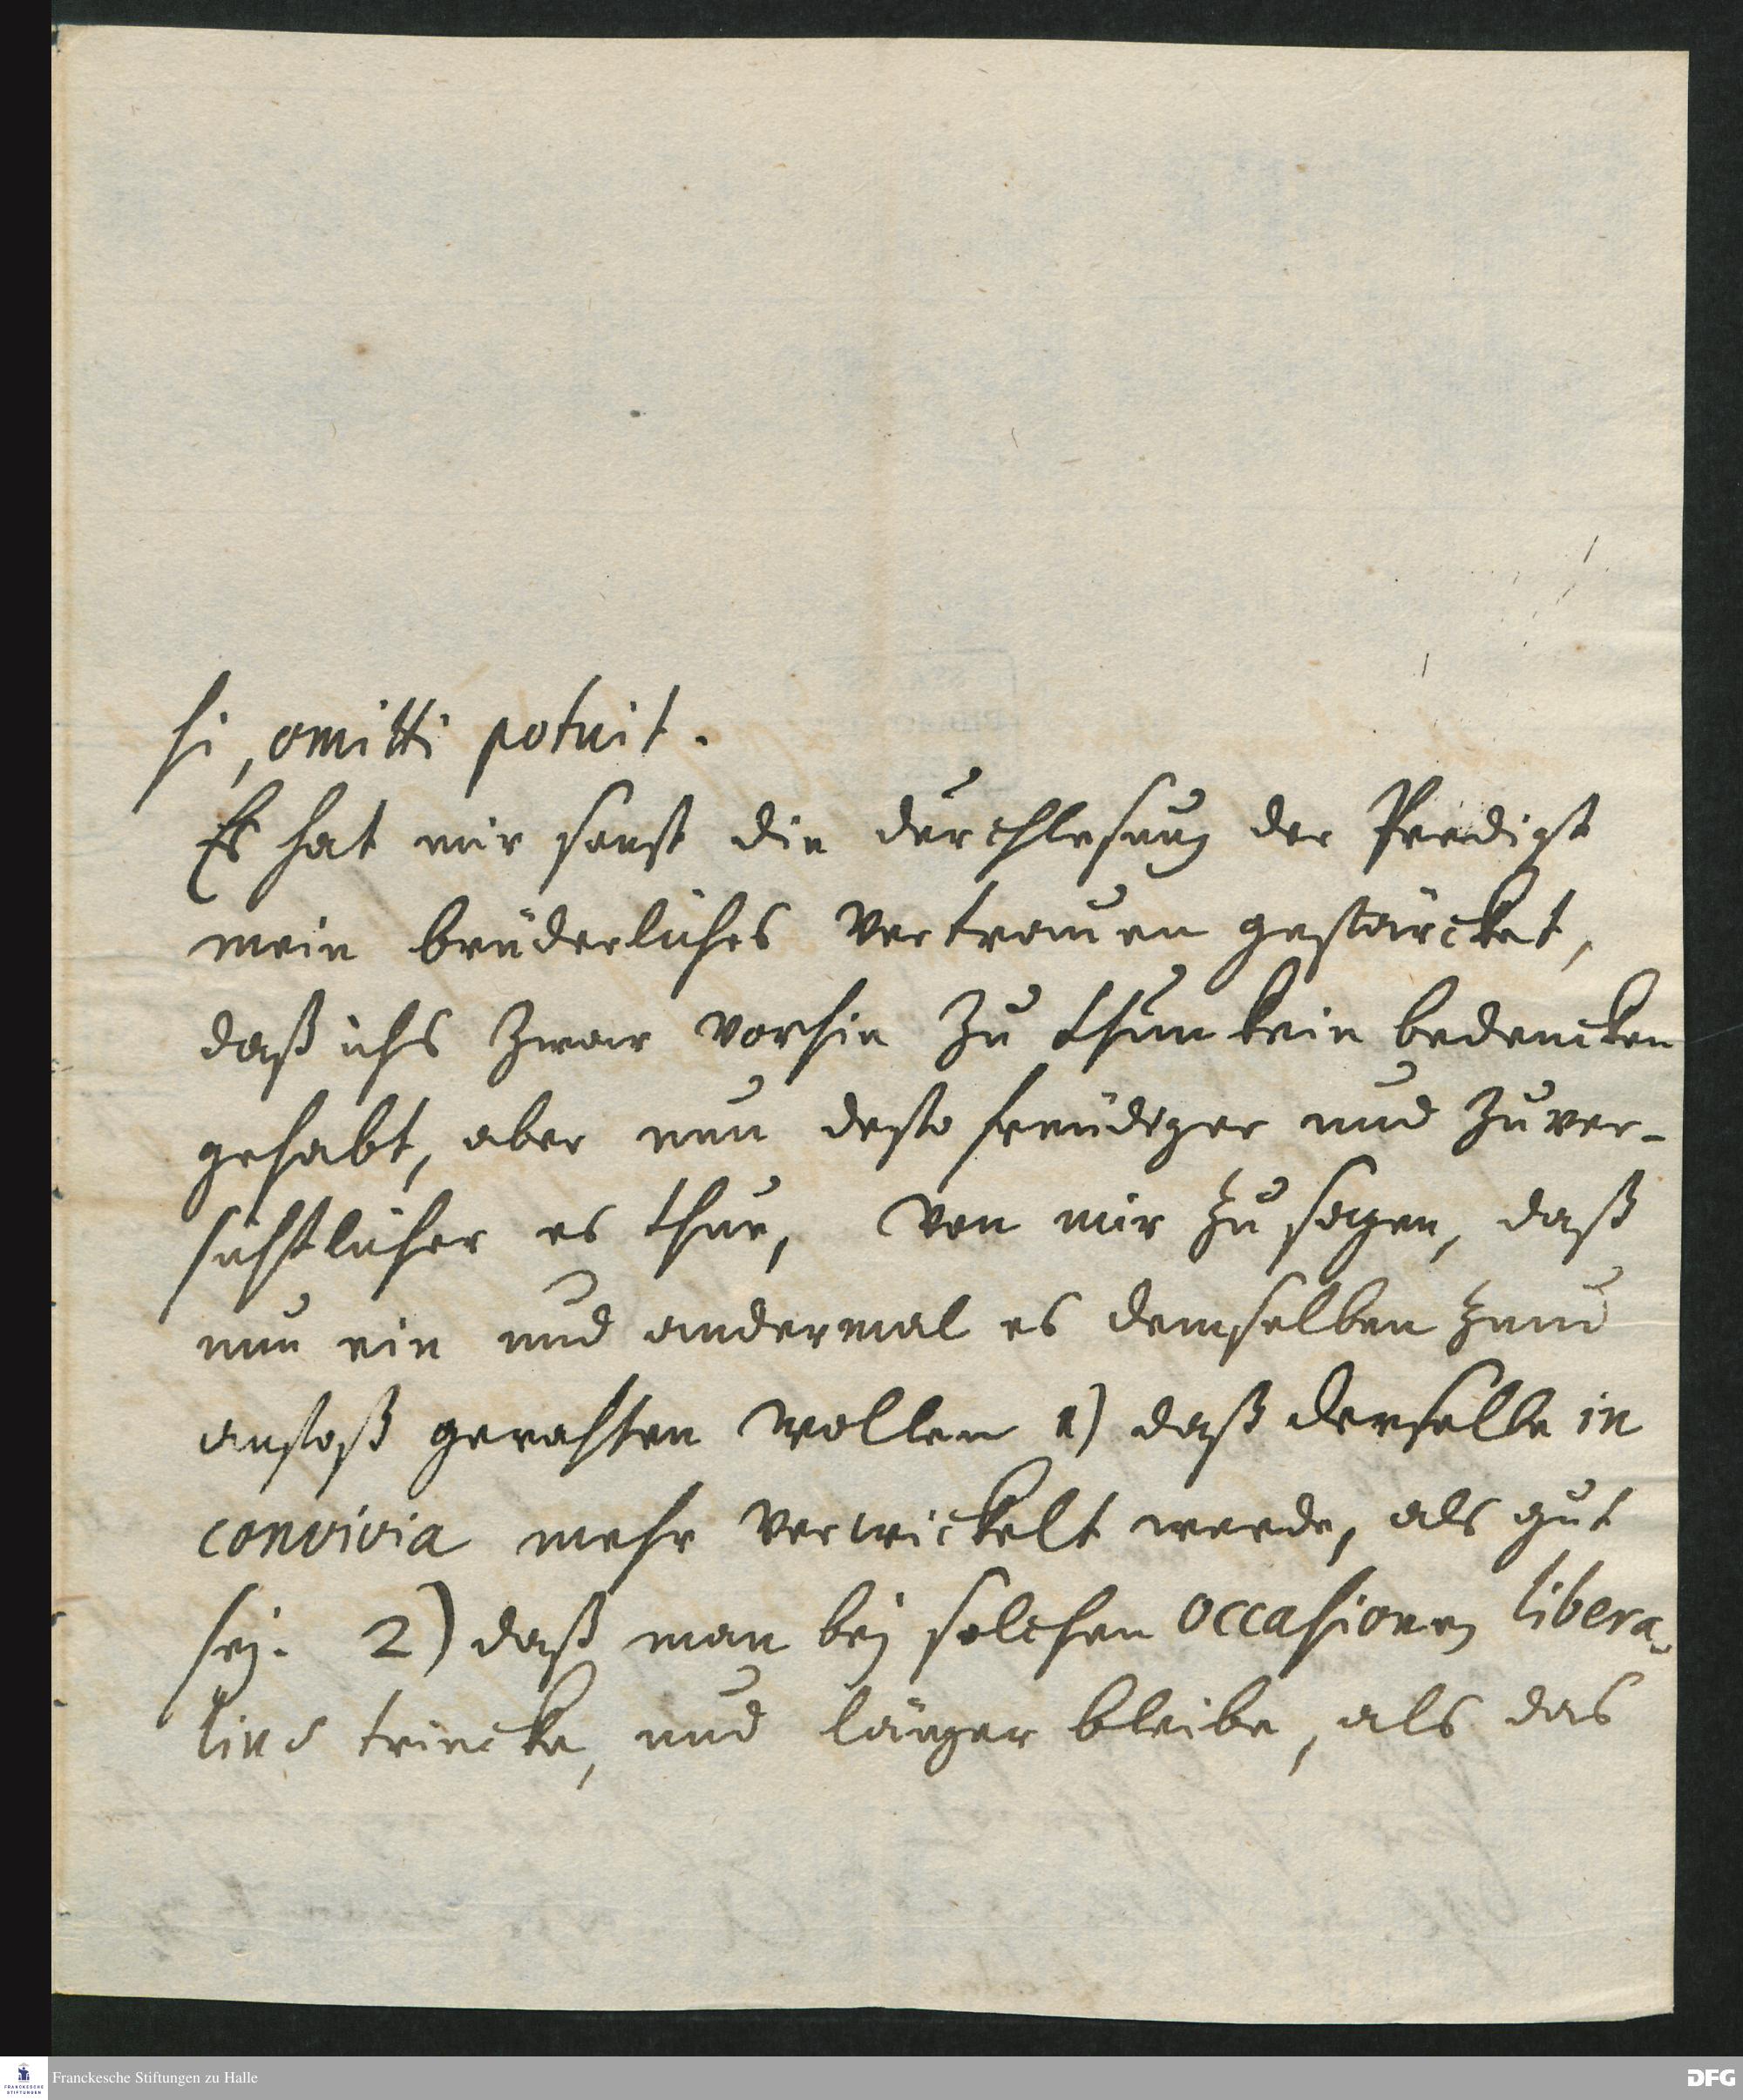 si, omitti potuit.
Es hat mir sonst die durchlesung der Predigt
mein brüderliches Vertrauen gestärcket,
daß ichs zwar vorhin zu thun kein bedencken
gehabt, aber nun desto freudiger und zuver-
sichtlicher es thue, von mir zu sagen, daß
nun ein und andermal es demselben zum
anstoß gerahten wollen 1) daß derselbe in
convivia mehr verwickelt werde, als gut
sey. 2) daß man bey solchen occasionen libera-
lius trincke, und länger bleibe, als das
Franckesche Stiftungen zu Halle
FRANCKESCHE STIFTUNGEN
DFG